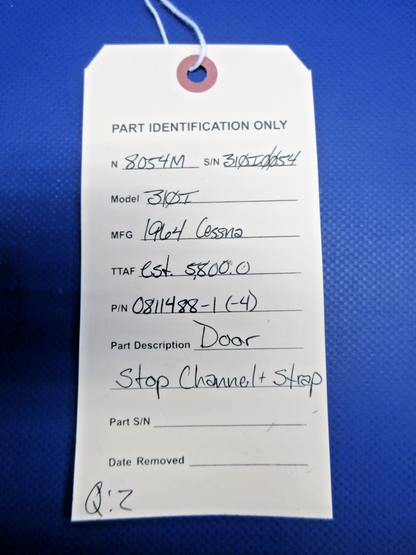 PART IDENTIFICATION ONLY
N 8054M S/N 310I0054
Model 310I
MFG 1964 Cessna
TTAF est. 5,800.0
P/N 0811488-1 (-4)
Part Description Door
Stop Channel + Strap
Part S/N
Date Removed
Q:2